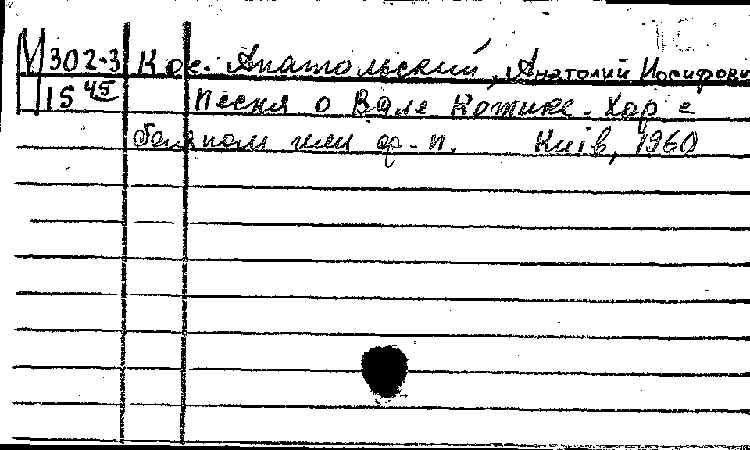 М 302-3 Кос. Анатольский, Анатолий Иосифови
15 45 Песня о Вале Котике. Хор с
баяном или ф-п. Киïв, 1960